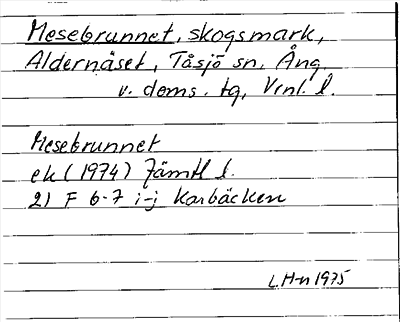 Mesebrunnet, skogsmark,
Aldernäset, Tåsjö sn, Ång.
v. doms. tg, Vrnl. l.
Mesebrunnet
ek (1974) Jämtl l.
21 F 6-7 i-j Karbäcken
L.H-n 1975